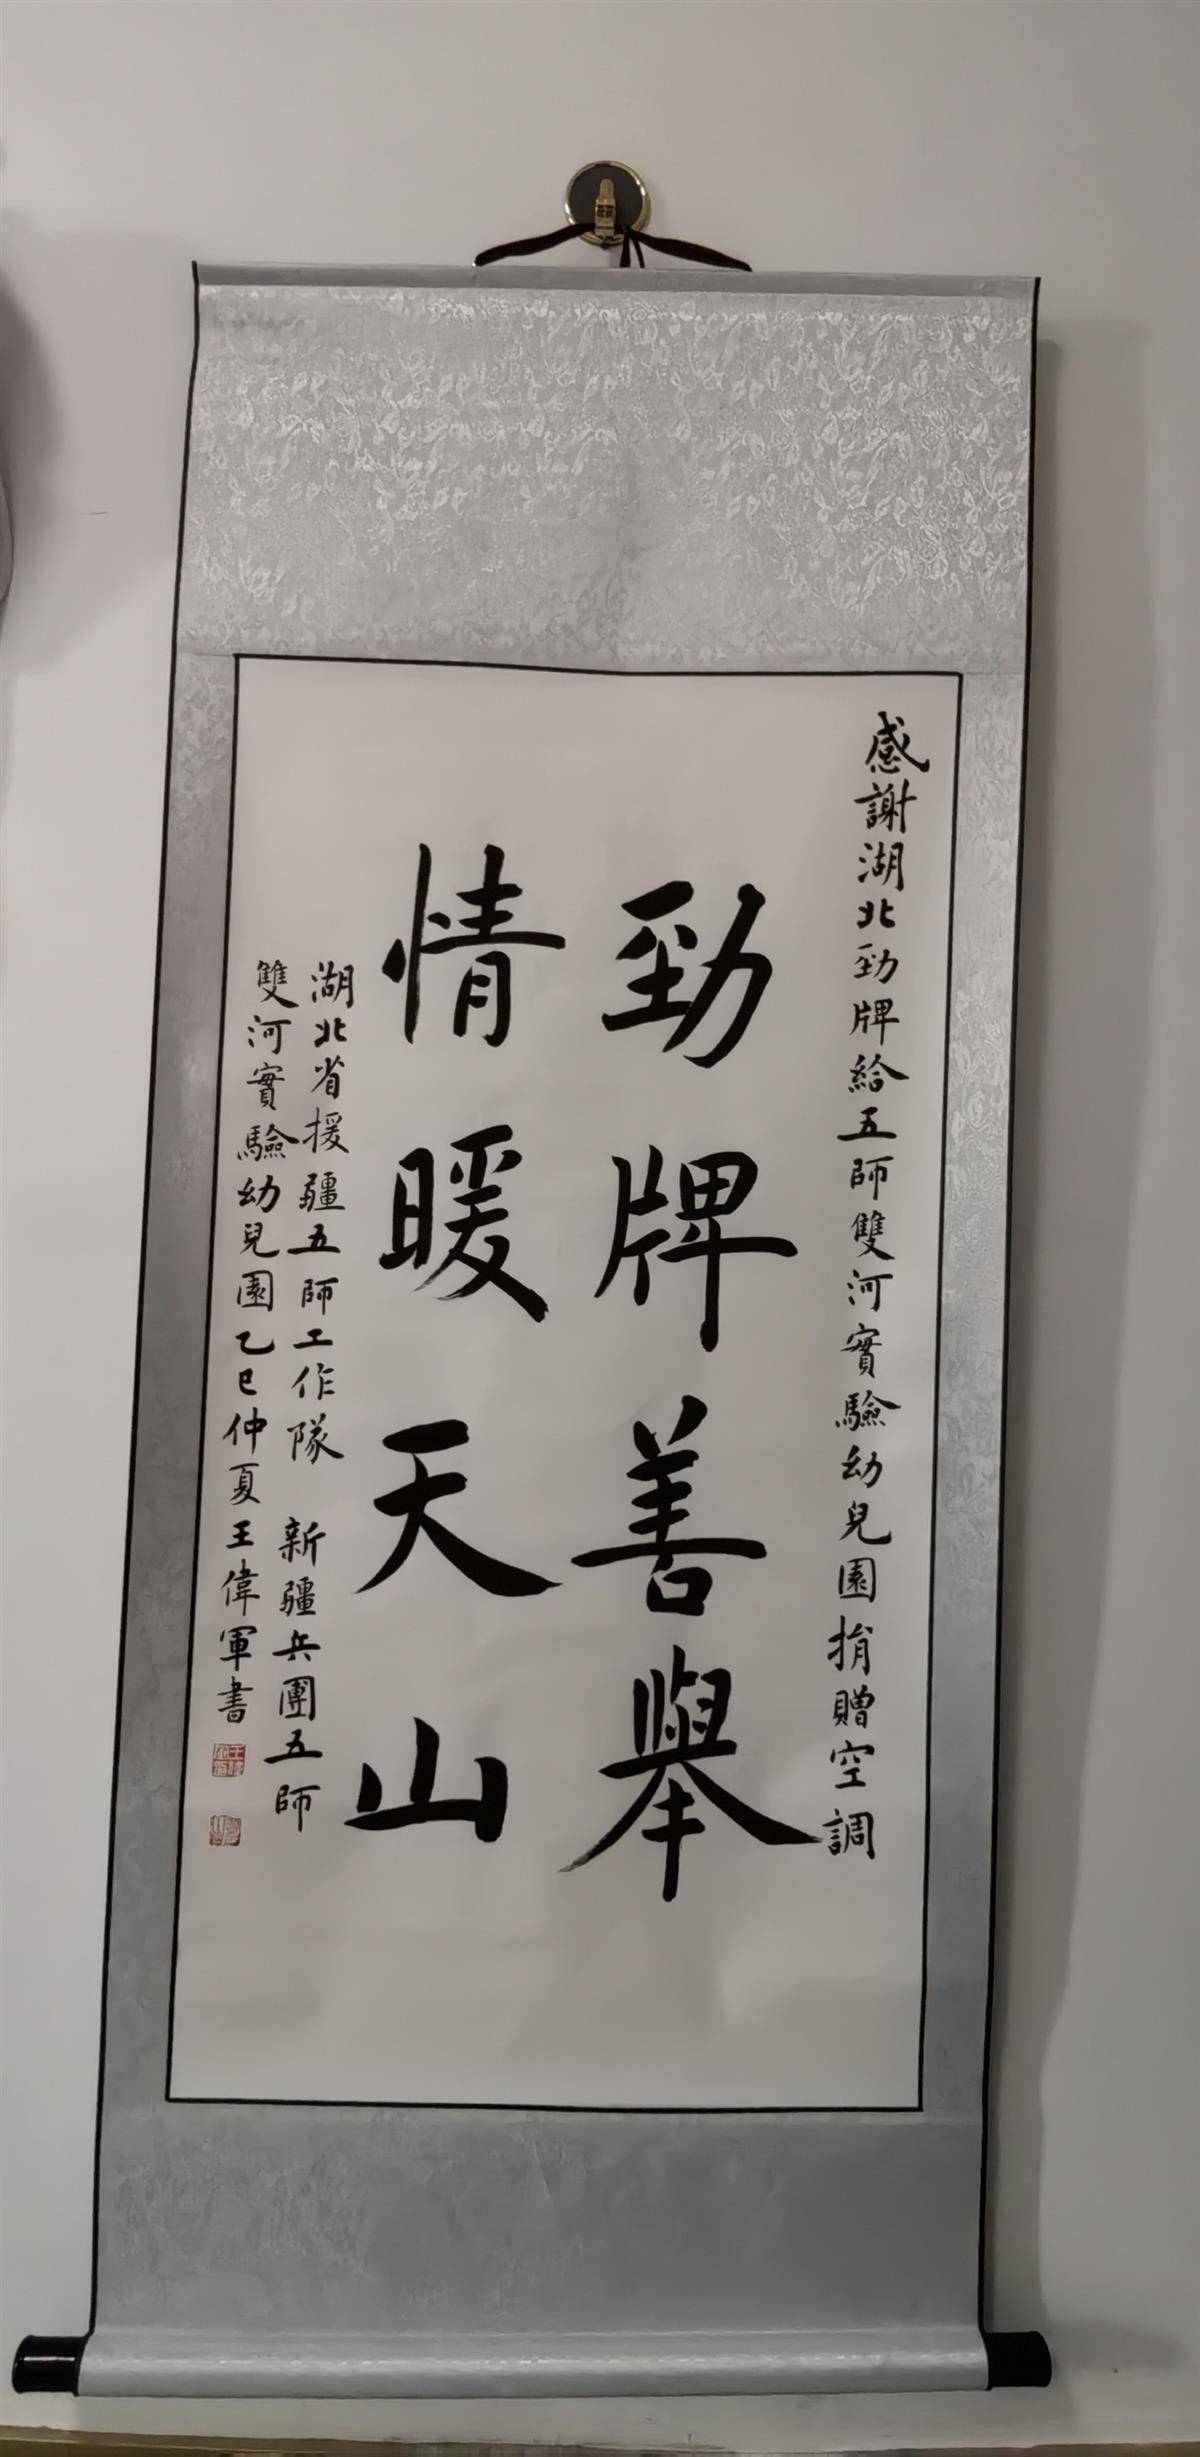 感謝湖北勁牌給五師雙河實驗幼兒園捐贈空調
勁牌善舉
情暖天山
湖北省援疆五師工作隊 新疆兵團五師
雙河實驗幼兒園乙巳仲夏王偉軍書